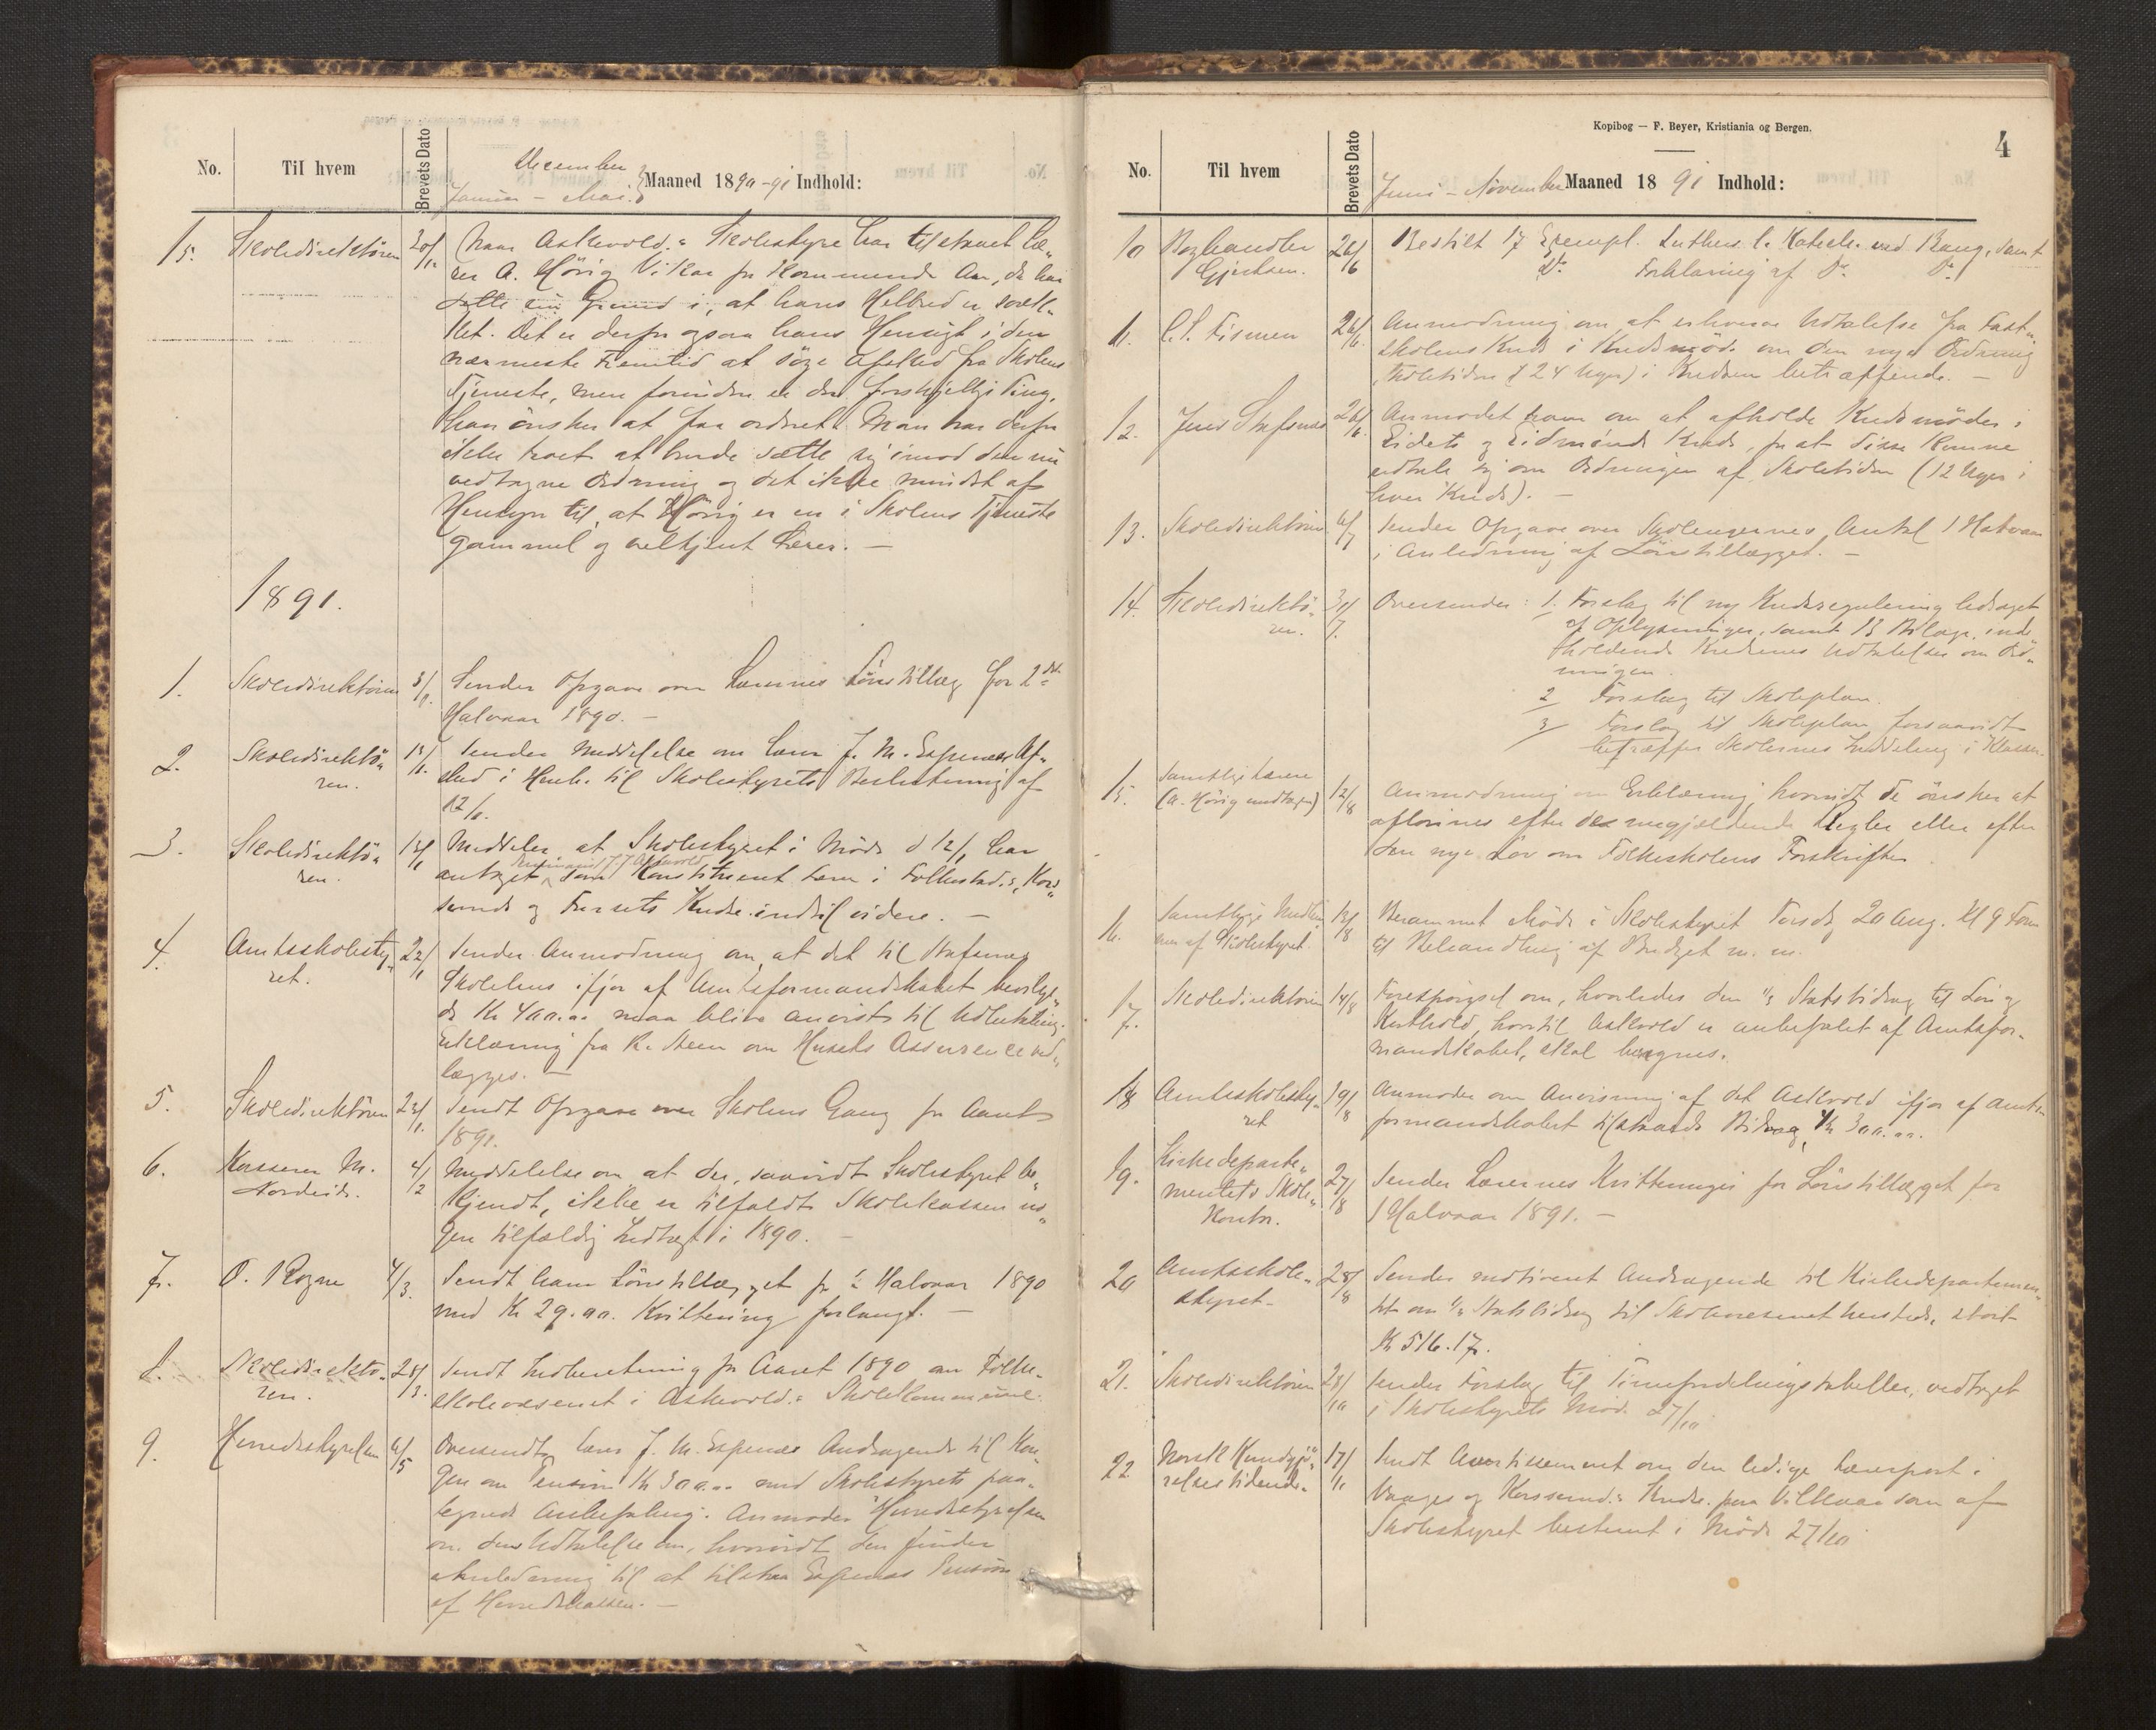 No. Til hvem Brevets Dato December
Januar – Mai. Maaned 1890-91 Indhold:
15. Skoledirektøren 20/12 Naar Askevold.s Skolestyre har tilstaaet Læ„
rer A. Hörig Vikar for kommende Aar, da har
dette sin Grund i, at hans Helbred er svæk„
ket. Det er derfor ogsaa hans Hensigt i den
nærmeste Fremtid at söge Afsked fra Skolens
Tjeneste, men forinden er der forskjellige Ting,
han önsker at faa ordnet. Man har derfor
ikke troet at burde sætte sig imod den nu
vedtagne Ordning og det ikke mindst af
Hensyn til, at Hörig er en i Skolens Tjeneste
gammel og velkjent Lærer. —
1891.
1. Skoledirektören 3/1. Sender Opgave over Lærernes Löns tillæg for 2det
Halvaar 1890. —
2. Skoledirektö„
ren. 13/1. Sender Meddelelse om Lærer J. M. Espenæs Af„
sked i Henh. til Skolestyrets Beslutning af
12/1.
3. Skoledirektö„
ren. 13/1 Meddeler, at Skolestyret i Möde d 12/1 har
antaget som Konstitueret Lærer i Folkestad.s, Kors„
sunds og Fursets Kredse indtil videre. —
4. Amtsskolesty„
ret. 22/1 Sender Anmodning om, at det til Stafsnes
Skolehus ifjor af Amtsformandskabet bevilge„
de Kr 400.00 maa blive anvist til Udbetaling.
Erklæring fra R. Steen om Husets Assurance ved„
lægges. —
5. Skoledirektören 23/1. Sendt Opgave over Skolens Gang for Aaret
1891.
6. Kasserer M.
Nordeide. 4/2 Meddelelse om at der, saavidt Skolestyret be„
kjendt, ikke er tilfaldt Skolekassen no„
gen tilfældig Indtægt i 1890. —
7. O. Rogne 4/3. Sendt ham Lönstillægget for 2 Halvaar 1890
med Kr 29.00. Kvittering forlangt. —
8. Skoledirektö„
ren. 28/3. Sendt Indberetning for Aaret 1890 om Folke„
skolevæsenet i Askevold.s Skolekommune.
9. Herredsstyrelsen 6/5 Oversendt Lærer J. M. Espenæs Andragende til Kon„
gen om Pension Kr 300.00 med Skolestyrets paa„
tegnede Anbefaling. Anmoder Herredsstyrelsen
om dens Udtalelse om, hvorvidt den finder
Anledning til at tilstaa Espenæs Pension
af Herredskassen. —
Kopibog — F. Beyer, Kristiania og Bergen.
4
No. Til hvem Brevets Dato Juni – November Maaned 1891 Indhold:
10 Boghandler
Gjertsen. 26/6 Bestilt 17 Exempl. Luthers l. Katek. ved Bang, samt
Do. Forklaring af Do. Do.
11. C. S. Fismen 26/6. Anmodning om at erhverve Udtalelse fra Fast„
skolens Kreds i Kredsmöde om den nye Ordning
(Skoletiden 24 Uger) i Kredsen betræffende. —
12. Jens Stafsnes 26/6. Anmodet ham om at afholde Kredsmöder i
Eidets og Eidmunds Kreds, for at disse kunne
udtale sig om Ordningen af Skoletiden (12 Uger i
hver Kreds). —
13. Skoledirektören 6/7 Sender Opgave over Skoleugernes Antal 1 Halvaar
i Anledning af Lönstillægget. —
14. Skoledirektö„
ren. 30/7. Oversender: 1. Forslag til ny Kredsregulering ledsaget
af Oplysninger, samt 13 Bilage, inde„
holdende Kredsenes Udtalelser om Ord„
ningen.
2 Forslag til Skoleplan.
3 Forslag til Skoleplan forsaavidt
betræffer Skolernes Inddeling i Klasser.
15. Samtlige Lærere
(A. Hörig undtagen) 12/8 Anmodning om Erklæring, hvorvidt de önsker at
aflönnes efter de nugjældende Regler eller efter
den nye Lov om Folkeskolens Forskrifter
16. Samtlige Medlem„
mer af Skolestyret. 13/8 Berammet Möde i Skolestyret Torsd. 20 Aug. Kl 9 Form
til Behandling af Budget m. m.
17. Skoledirektören 14/8 Forespörgsel om, hvorledes den 1/3 Statsbidrag til Lön og
Kosthold, hvortil Askevold er anbefalet af Amtsfor„
mandskabet, skal beregnes.
18 Amtsskolesty„
ret 19/8 Anmoder om Anvisning af det Askevold ifjor af Amts„
formandskabet tilstaaede Bidrag, Kr 300.00.
19. Kirkedeparte„
mentets Skole„
Kontor. 27/8 Sender Lærernes Kvitteringer for Lönstillægget for
1 Halvaar 1891. —
20 Amtsskole„
styret 28/8 Sender motiveret Andragende til Kirkedepartemen„
tet om Statsbidrag til Skolevæsenet herstede, stort
Kr 516.17.
21. Skoledirektören 28/10 Sender Forslag til Timefordelingstabeller, vedtaget
i Skolestyrets Möde 27/10
22 Norsk Kundgjö„
relsestidende. 17/11 Sendt Avertissement om den ledige Lærerpost i
Vaages og Korssund.s Kredse paa Vilkaar som af
Skolestyret bestemt i Möde 27/10